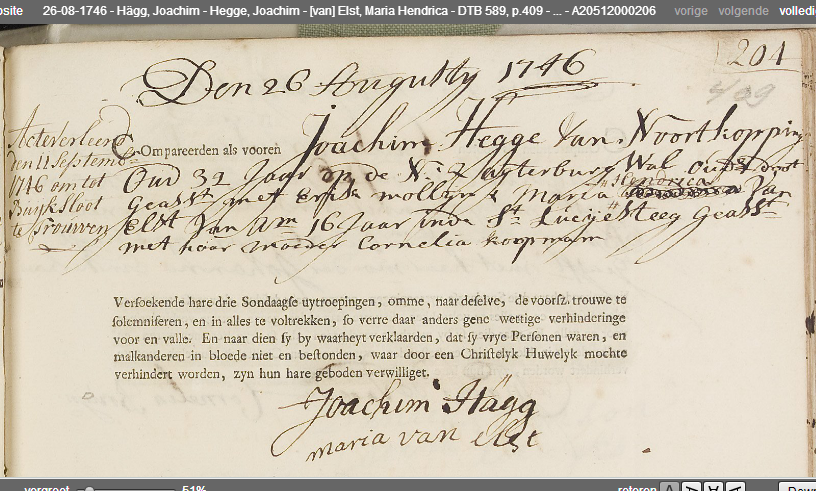 osite 26-08-1746 - Hägg, Joachim - Hegge, Joachim - [van] Elst, Maria Hendrica - DTB 589, p.409 - ... - A20512000206 vorige volgende volledi
201
409
Den 26 Augusty 1746
Acte verleend
den 11 Septemb
1746 om tot
Buyksloot
te trouwen
Compareerden als vooren Joachim Hegge Van Noortkopping
Oud 32 Jaar op de N: Z agterburg Wal ouders doot
Geasst met Erik mollyn & Maria Hendrica Van
Elst Van Am 16 Jaar inde St Lucyesteeg Geasst
met haar moeder Cornelia koopman
Versoekende hare drie Sondaagse uytroepingen, omme, naar deselve, de voorsz. trouwe te
solemniseren, en in alles te voltrekken, so verre daar anders gene wettige verhinderinge
voor en valle. En naar dien sy by waarheyt verklaarden, dat sy vrye Personen waren, en
malkanderen in bloede niet en bestonden, waar door een Christelyk Huwelyk mochte
verhindert worden, zyn hun hare geboden verwilliget.
Joachim Hägg
maria van elst
vergroot 51% roteren